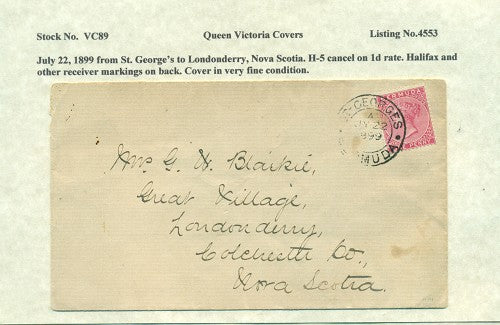 Stock No. VC89 Queen Victoria Covers Listing No.4553
July 22, 1899 from St. George's to Londonderry, Nova Scotia. H-5 cancel on 1d rate. Halifax and
other receiver markings on back. Cover in very fine condition.
ST GEORGES
A
JY 22
1899
BERMUDA
BERMUDA
PENNY
Mrs G. H. Blaikie,
Great Village,
Londonderry,
Colchester Co.,
Nova Scotia.